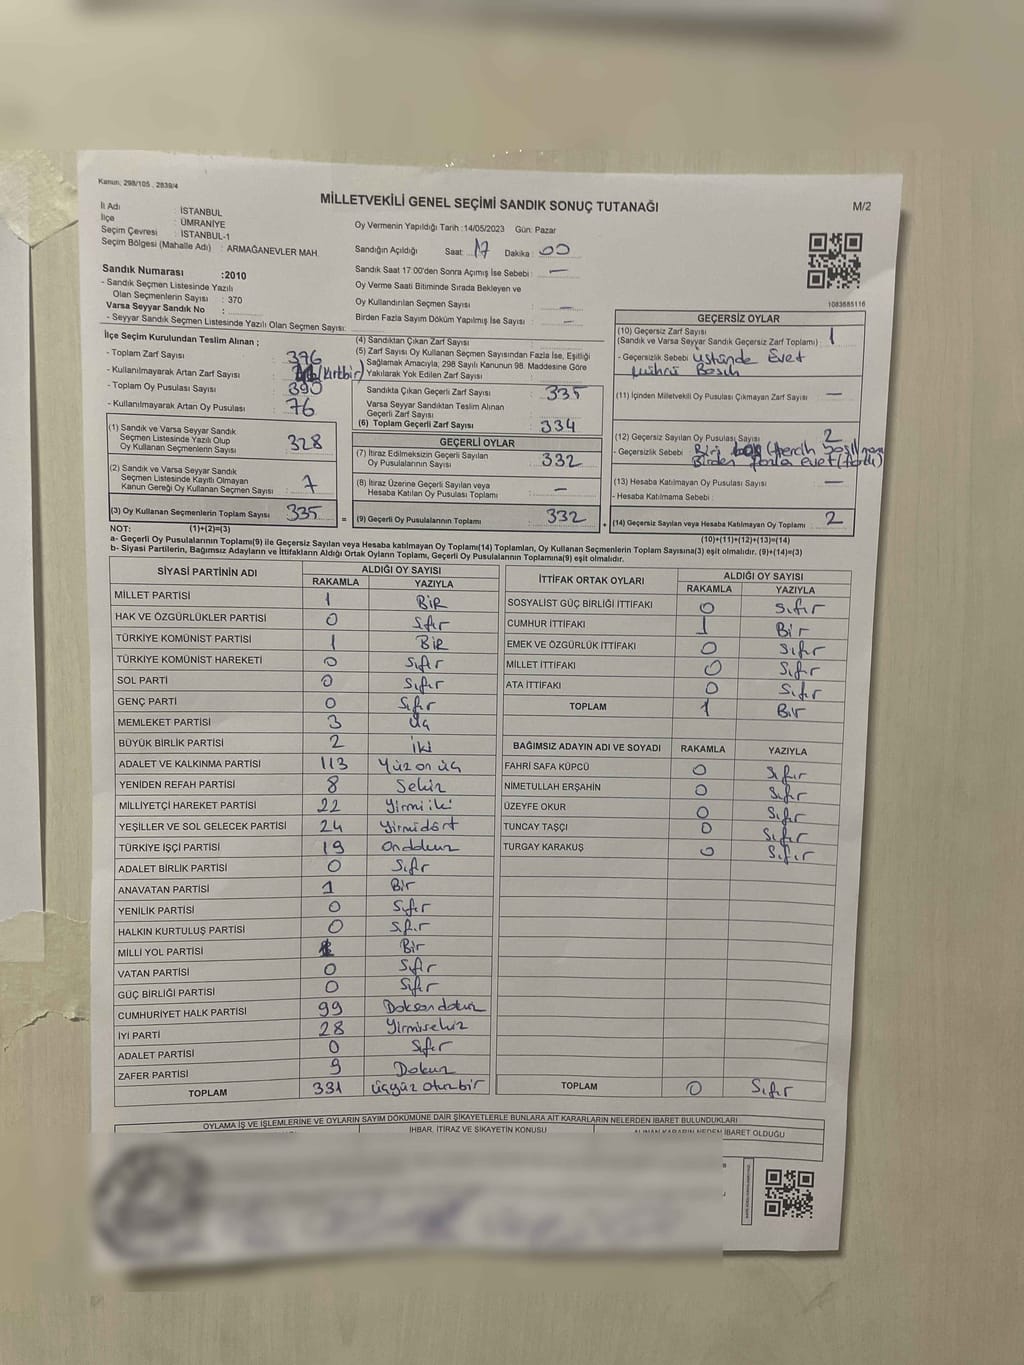 Kanun; 298/105 , 2839/4
MİLLETVEKİLİ GENEL SEÇİMİ SANDIK SONUÇ TUTANAĞI
M/2
İl Adı : İSTANBUL
İlçe : ÜMRANİYE
Seçim Çevresi : İSTANBUL-1
Seçim Bölgesi (Mahalle Adı) : ARMAĞANEVLER MAH.
Sandık Numarası :2010
- Sandık Seçmen Listesinde Yazılı
Olan Seçmenlerin Sayısı : 370
Varsa Seyyar Sandık No :
- Seyyar Sandık Seçmen Listesinde Yazılı Olan Seçmen Sayısı:
Oy Vermenin Yapıldığı Tarih :14/05/2023 Gün: Pazar
Sandığın Açıldığı Saat: 17 Dakika: 00
Sandık Saat 17:00'den Sonra Açımış İse Sebebi : —
Oy Verme Saati Bitiminde Sırada Bekleyen ve
Oy Kullandırılan Seçmen Sayısı : —
Birden Fazla Sayım Döküm Yapılmış İse Sayısı : —
1083685116
İlçe Seçim Kurulundan Teslim Alınan ;
- Toplam Zarf Sayısı : 396
- Kullanılmayarak Artan Zarf Sayısı :
- Toplam Oy Pusulası Sayısı : 390
- Kullanılmayarak Artan Oy Pusulası : 76
(1) Sandık ve Varsa Seyyar Sandık
Seçmen Listesinde Yazılı Olup
Oy Kullanan Seçmenlerin Sayısı : 328
(2) Sandık ve Varsa Seyyar Sandık
Seçmen Listesinde Kayıtlı Olmayan
Kanun Gereği Oy Kullanan Seçmen Sayısı : 7
(3) Oy Kullanan Seçmenlerin Toplam Sayısı : 335
(4) Sandıktan Çıkan Zarf Sayısı :
(5) Zarf Sayısı Oy Kullanan Seçmen Sayısından Fazla İse, Eşitliği
Sağlamak Amacıyla, 298 Sayılı Kanunun 98. Maddesine Göre
Yakılarak Yok Edilen Zarf Sayısı :
Sandıkta Çıkan Geçerli Zarf Sayısı : 335
Varsa Seyyar Sandıktan Teslim Alınan
Geçerli Zarf Sayısı :
(6) Toplam Geçerli Zarf Sayısı : 334
GEÇERLİ OYLAR
(7) İtiraz Edilmeksizin Geçerli Sayılan
Oy Pusulalarının Sayısı : 332
(8) İtiraz Üzerine Geçerli Sayılan veya
Hesaba Katılan Oy Pusulası Toplamı : —
= (9) Geçerli Oy Pusulalarının Toplamı : 332
GEÇERSİZ OYLAR
(10) Geçersiz Zarf Sayısı : 1
(Sandık ve Varsa Seyyar Sandık Geçersiz Zarf Toplamı)
- Geçersizlik Sebebi : üstünde Evet
mührü Basılı
(11) İçinden Milletvekili Oy Pusulası Çıkmayan Zarf Sayısı : —
(12) Geçersiz Sayılan Oy Pusulası Sayısı : 2
- Geçersizlik Sebebi :
Birden fazla evet
(13) Hesaba Katılmayan Oy Pusulası Sayısı : —
- Hesaba Katılmama Sebebi :
+ (14) Geçersiz Sayılan veya Hesaba Katılmayan Oy Toplamı : 2
NOT: (1)+(2)=(3)
(10)+(11)+(12)+(13)=(14)
a- Geçerli Oy Pusulasının Toplamı(9) ile Geçersiz Sayılan veya Hesaba katılmayan Oy Toplamı(14) Toplamları, Oy Kullanan Seçmenlerin Toplam Sayısına(3) eşit olmalıdır. (9)+(14)=(3)
b- Siyasi Partilerin, Bağımsız Adayların ve İttifakların Aldığı Ortak Oyların Toplamı, Geçerli Oy Pusulalarının Toplamına(9) eşit olmalıdır.
SİYASİ PARTİNİN ADI ALDIĞI OY SAYISI
RAKAMLA YAZIYLA
MİLLET PARTİSİ 1 BİR
HAK VE ÖZGÜRLÜKLER PARTİSİ 0 Sıfır
TÜRKİYE KOMÜNİST PARTİSİ 1 BİR
TÜRKİYE KOMÜNİST HAREKETİ 0 Sıfır
SOL PARTİ 0 Sıfır
GENÇ PARTİ 0 Sıfır
MEMLEKET PARTİSİ 3 Üç
BÜYÜK BİRLİK PARTİSİ 2 iki
ADALET VE KALKINMA PARTİSİ 113 Yüz on üç
YENİDEN REFAH PARTİSİ 8 Sekiz
MİLLİYETÇİ HAREKET PARTİSİ 22 Yirmi iki
YEŞİLLER VE SOL GELECEK PARTİSİ 24 Yirmidört
TÜRKİYE İŞÇİ PARTİSİ 19 Ondokuz
ADALET BİRLİK PARTİSİ 0 Sıfır
ANAVATAN PARTİSİ 1 Bir
YENİLİK PARTİSİ 0 Sıfır
HALKIN KURTULUŞ PARTİSİ 0 Sıfır
MİLLİ YOL PARTİSİ 1 Bir
VATAN PARTİSİ 0 Sıfır
GÜÇ BİRLİĞİ PARTİSİ 0 Sıfır
CUMHURİYET HALK PARTİSİ 99 Doksan dokuz
İYİ PARTİ 28 Yirmisekiz
ADALET PARTİSİ 0 Sıfır
ZAFER PARTİSİ 9 Dokuz
TOPLAM 331 üçyüz otuzbir
İTTİFAK ORTAK OYLARI ALDIĞI OY SAYISI
RAKAMLA YAZIYLA
SOSYALİST GÜÇ BİRLİĞİ İTTİFAKI 0 Sıfır
CUMHUR İTTİFAKI 1 Bir
EMEK VE ÖZGÜRLÜK İTTİFAKI 0 Sıfır
MİLLET İTTİFAKI 0 Sıfır
ATA İTTİFAKI 0 Sıfır
TOPLAM 1 Bir
BAĞIMSIZ ADAYIN ADI VE SOYADI RAKAMLA YAZIYLA
FAHRİ SAFA KÜPCÜ 0 Sıfır
NİMETULLAH ERŞAHİN 0 Sıfır
ÜZEYFE OKUR 0 Sıfır
TUNCAY TAŞÇI 0 Sıfır
TURGAY KARAKUŞ 0 Sıfır
TOPLAM 0 Sıfır
OYLAMA İŞ VE İŞLEMLERİNE VE OYLARIN SAYIM DÖKÜMÜNE DAİR ŞİKAYETLERLE BUNLARA AİT KARARLARIN NELERDEN İBARET BULUNDUKLARI
İHBAR, İTİRAZ VE ŞİKAYETİN KONUSU
ALINAN KARARIN NEDEN İBARET OLDUĞU